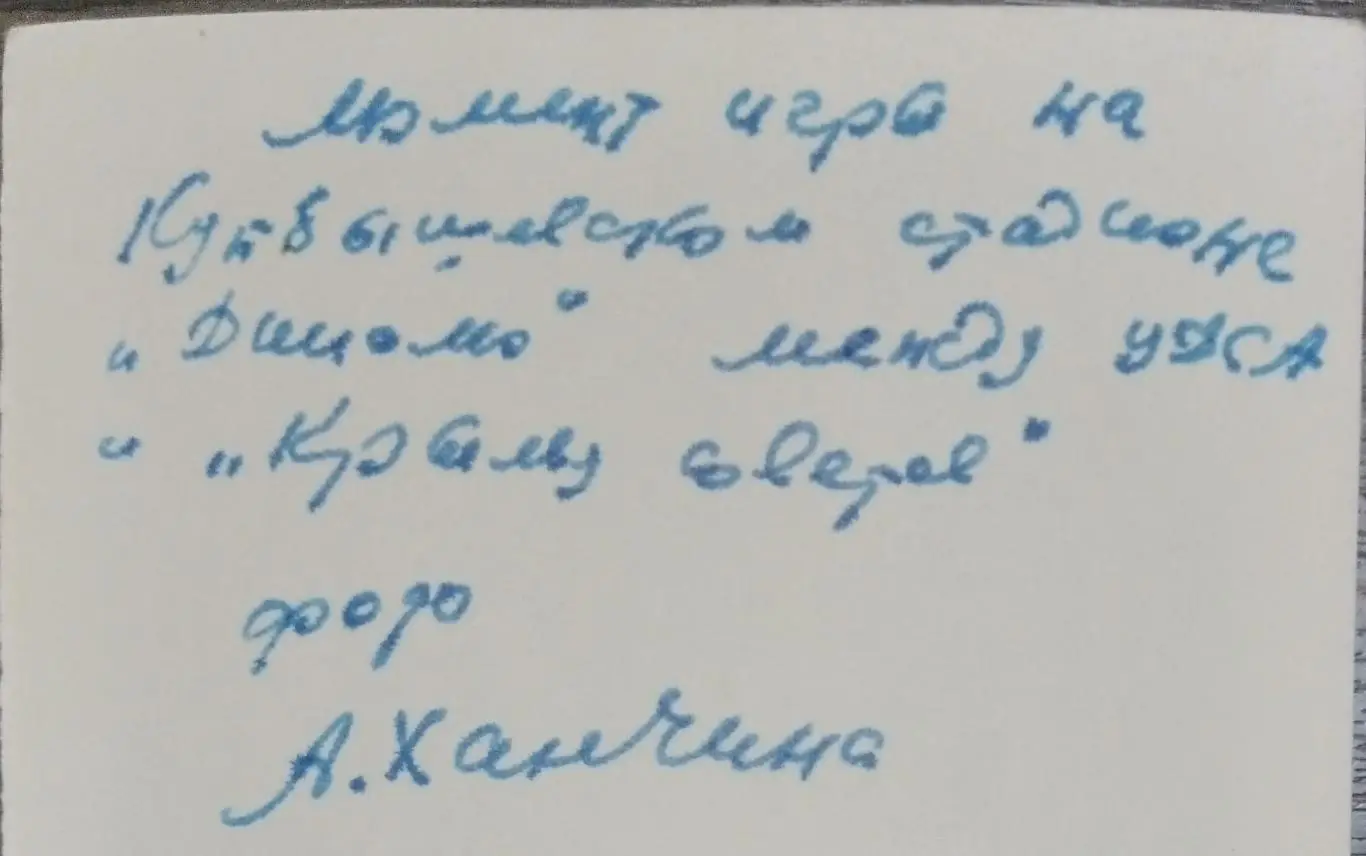 момент игры на
Куйбышевском стадионе
„Динамо" между ЦДСА
и „Крылья советов"
фото
А. Ханчина